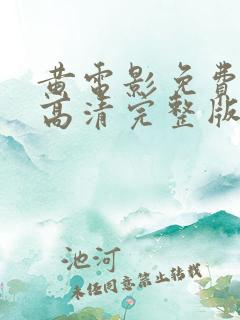 黄雷影免费
高清完整版
池河
未经同意禁止转载